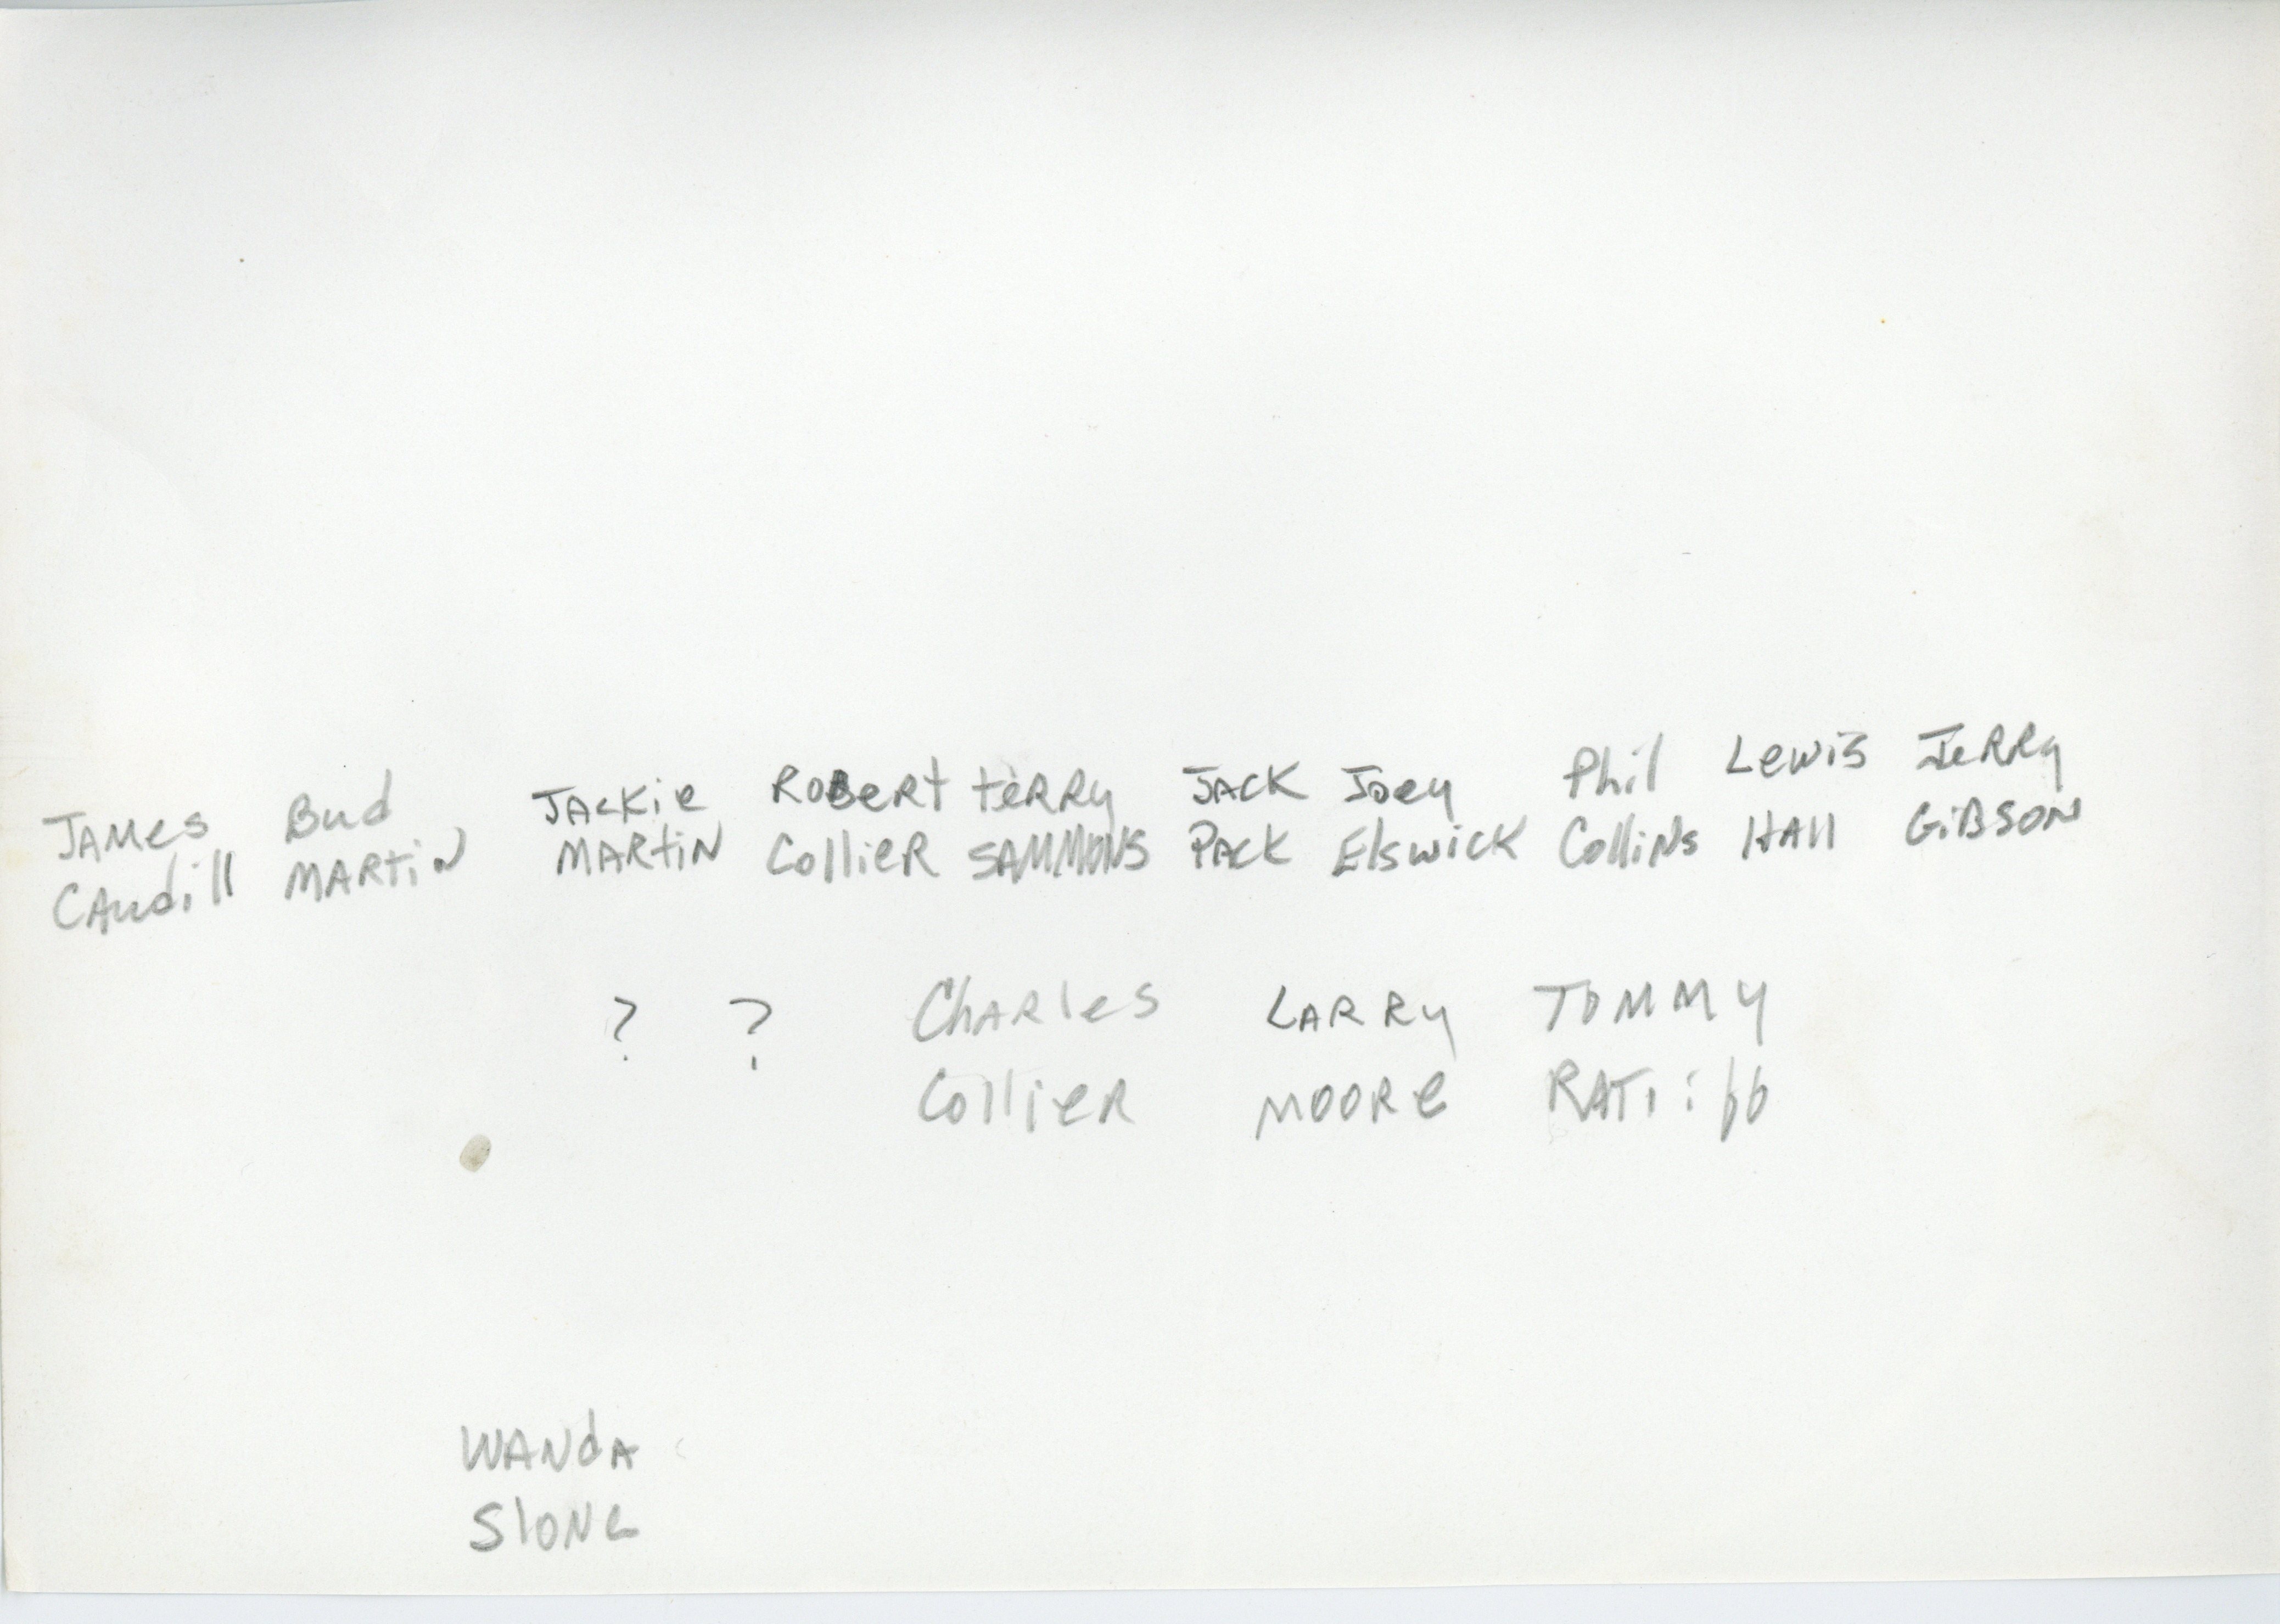 JAMES Bud JACKie ROBeRt teRRy JACK Joey Phil Lewis JeRRy
CAudill MARtiN MARtiN CollieR SAMMONS PACK Elswick ColliNs HAll GiBSON
? ? ChARles LARRy TOMMY
CollieR MOORe RATliff
WANdA
SloNe